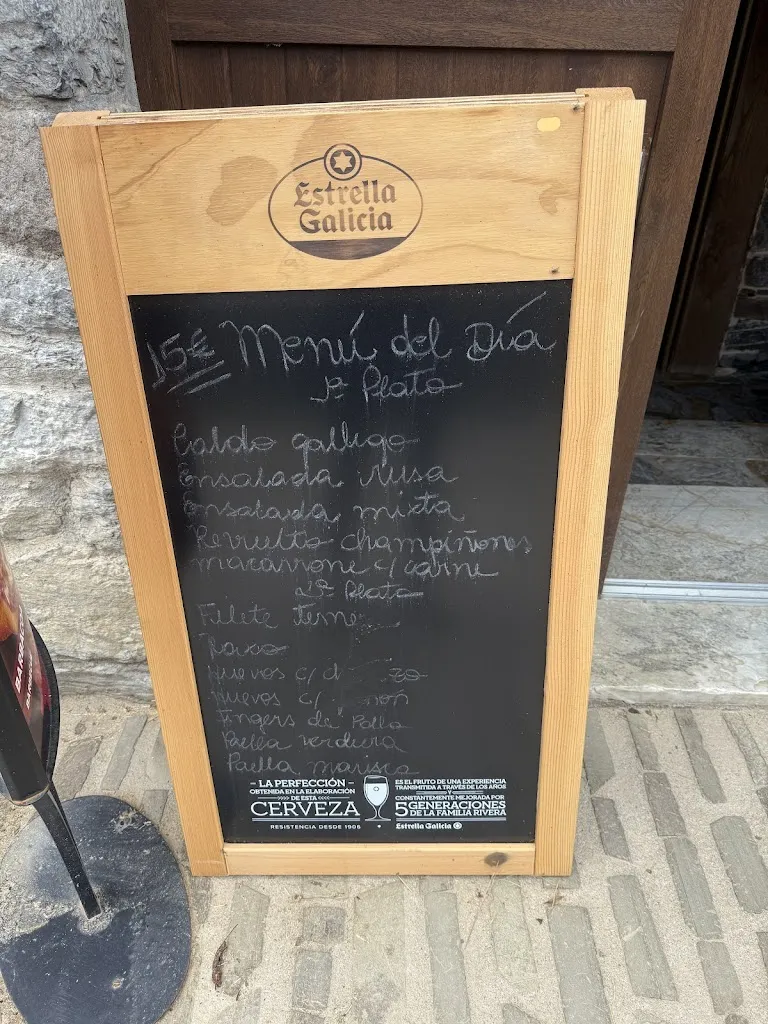 Estrella
Galicia
15€ Menú del Día
1º Plato
Caldo gallego
Ensalada rusa
Ensalada mixta
Revuelto champiñones
macarrone c/carne
2º Plato
Filete
Raxo
Huevos c/
Huevos c/
Fingers de Pollo
Paella verdura
Paella marisco
- LA PERFECCIÓN -
OBTENIDA EN LA ELABORACIÓN
DE ESTA
CERVEZA
RESISTENCIA DESDE 1906
ES EL FRUTO DE UNA EXPERIENCIA
TRANSMITIDA A TRAVÉS DE LOS AÑOS
Y
CONSTANTEMENTE MEJORADA POR
5 GENERACIONES
DE LA FAMILIA RIVERA
Estrella Galicia